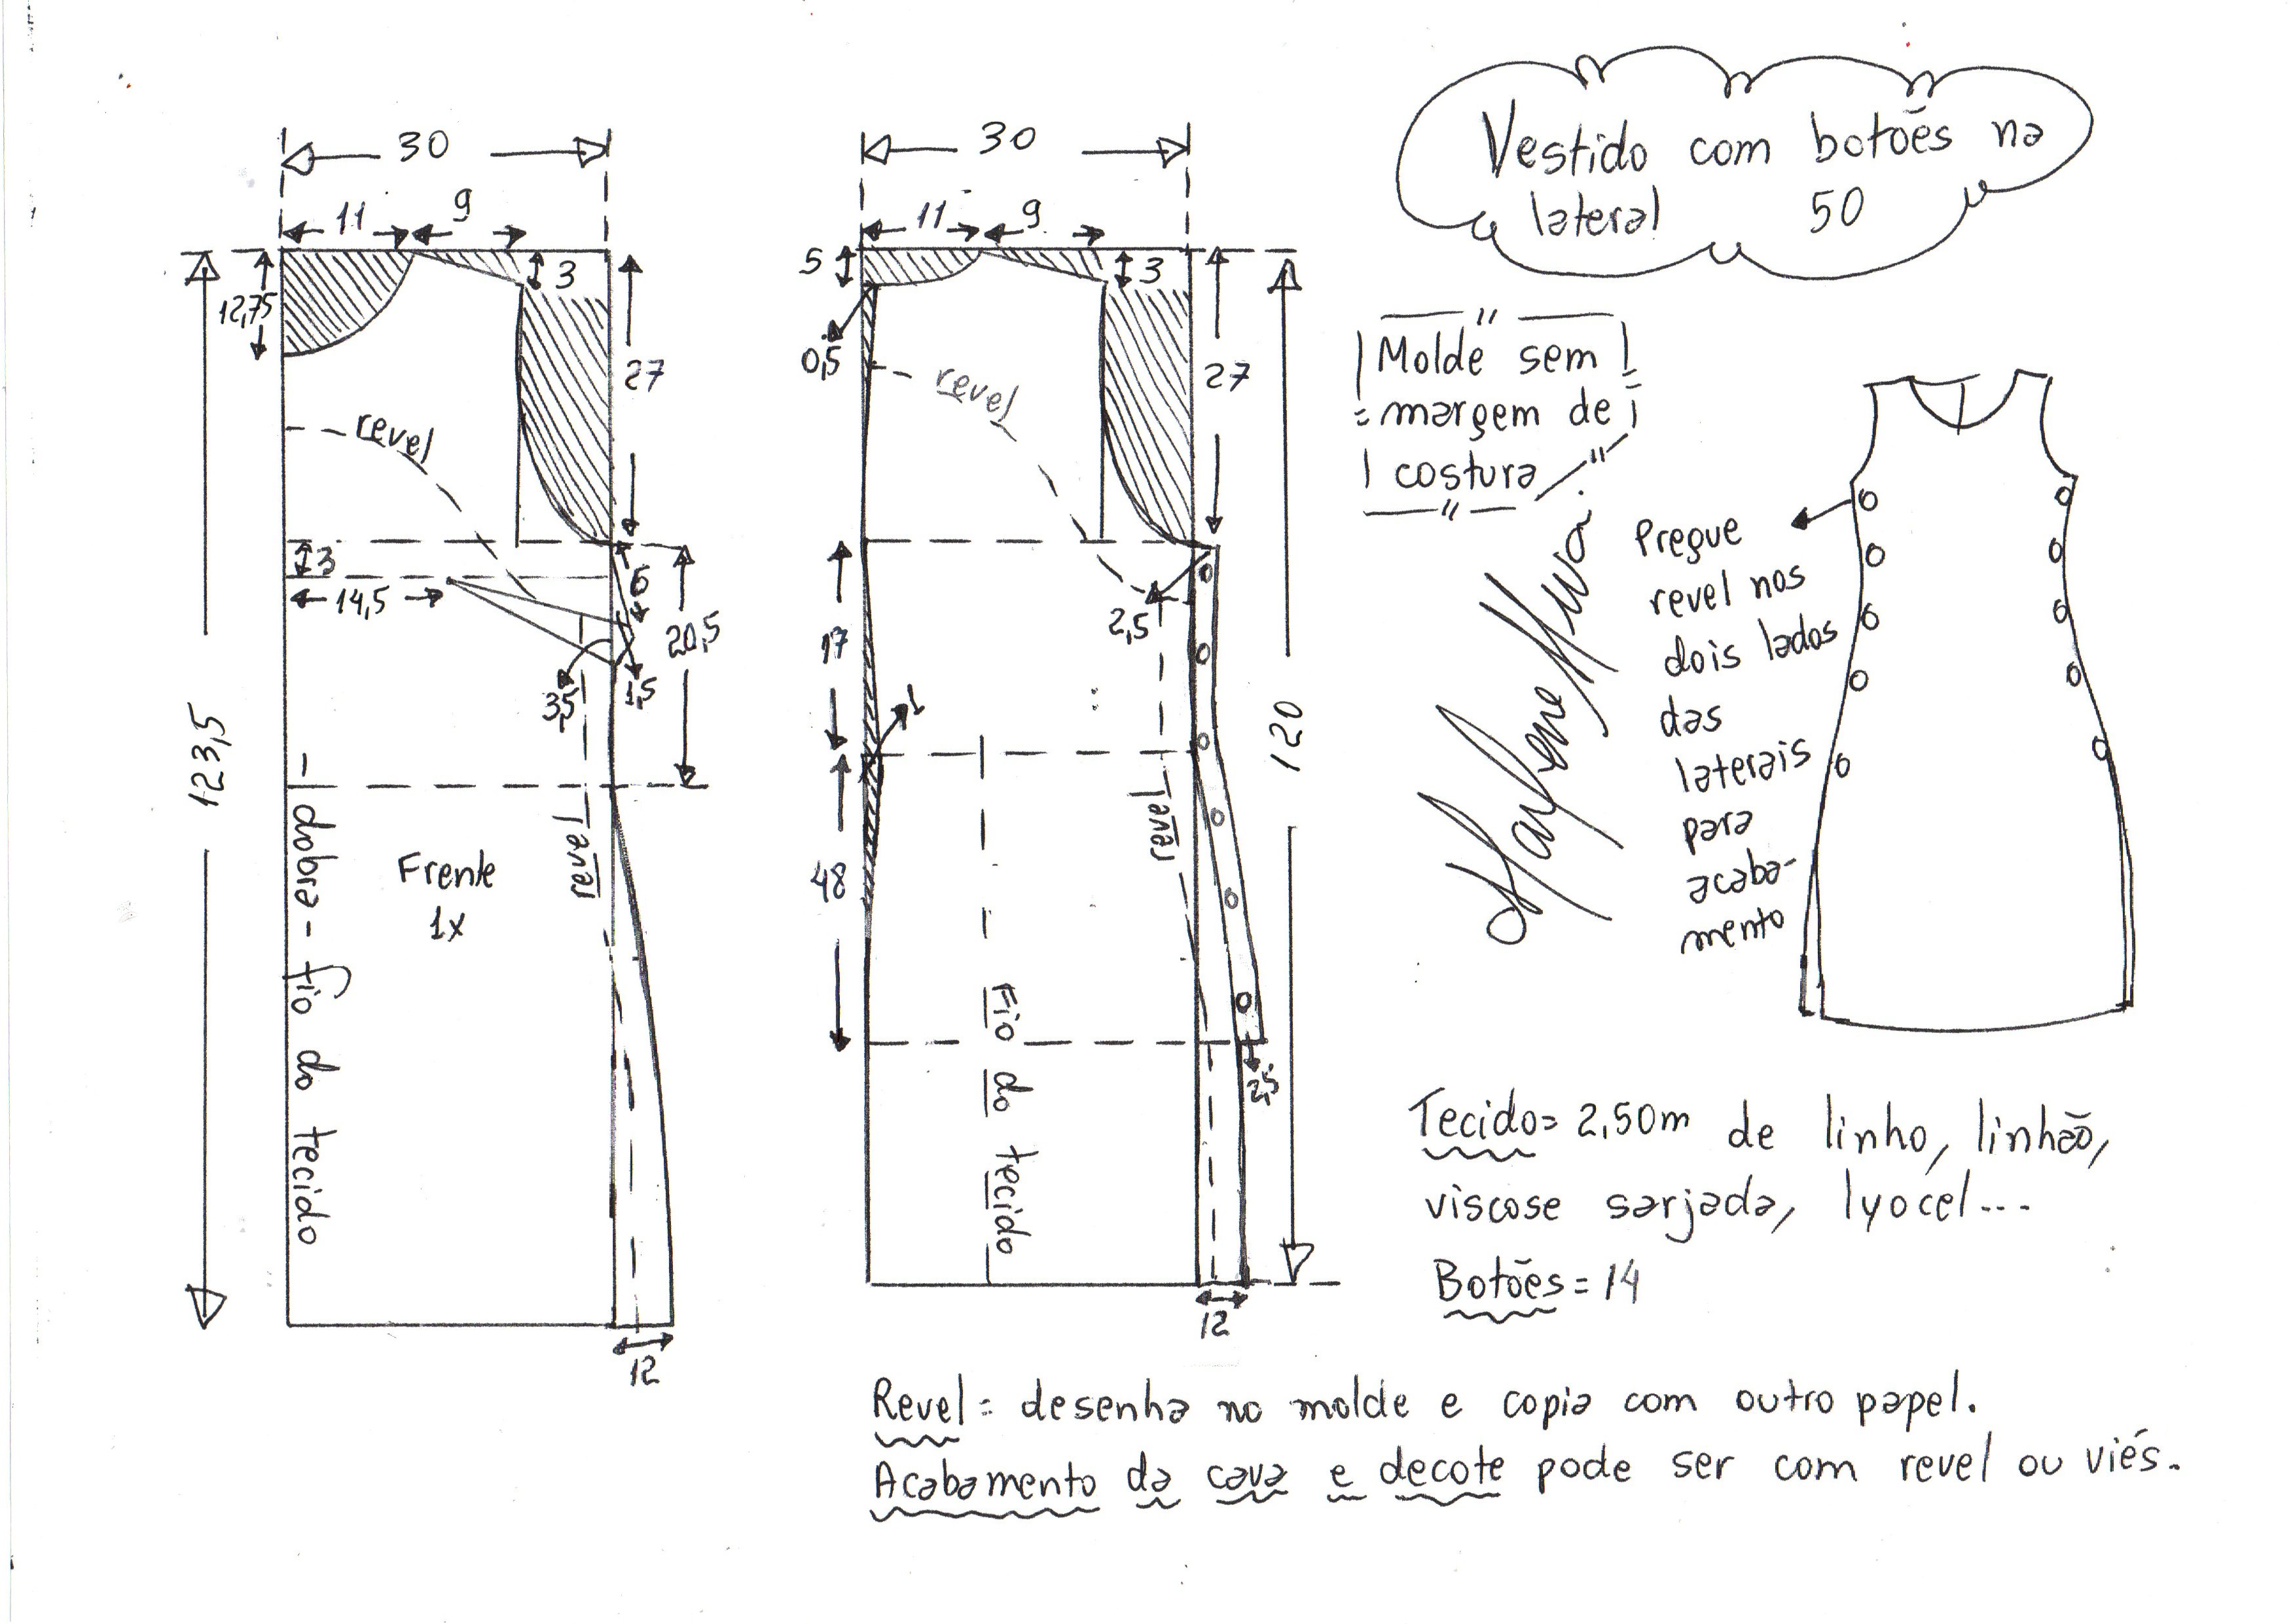 Vestido com botões na
lateral 50
30
11 9
12,75
3
27
revel
3
14,5
6
3,5
1,5
20,5
123,5
dobra - fio do tecido
Frente
1x
revel
12
30
11 9
5
3
0,5
27
revel
2,5
17
1
48
revel
120
Fio do tecido
2,5
12
Molde sem
margem de
costura
Pregue
revel nos
dois lados
das
laterais
para
acaba-
mento
Tecido= 2,50m de linho, linhão,
viscose sarjada, lyocel...
Botões=14
Revel= desenha no molde e copia com outro papel.
Acabamento da cava e decote pode ser com revel ou viés.